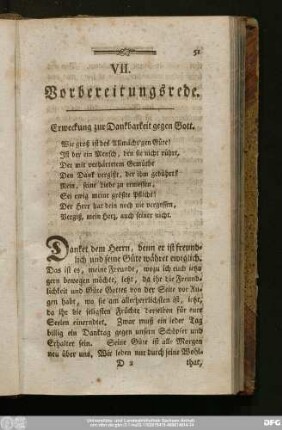 51
VII.
Vorbereitungsrede.
Erweckung zur Dankbarkeit gegen Gott.
Wie groß ist des Allmächt'gen Güte!
Ist der ein Mensch, den sie nicht rührt,
Der mit verhärtetem Gemüthe
Den Dank vergißt, der ihm gebührt?
Nein, seine Liebe zu ermessen,
Sey ewig meine größte Pflicht!
Der Herr hat dein noch nie vergessen,
Vergiß, mein Herz, auch seiner nicht.
Danket dem Herrn, denn er ist freund-
lich und seine Güte währet ewiglich.
Das ist es, meine Freunde, wozu ich euch
gen bewegen möchte, jetzt, da ihr die Freund-
lichkeit und Güte Gottes von der Seite vor Au-
gen habt, wo sie am allerherrlichsten ist, jetzt,
da ihr die seligsten Früchte derselben für eure
Seelen einerndtet. Zwar muß ein jeder Tag
billig ein Danktag gegen unsern Schöpfer und
Erhalter sein. Seine Güte ist alle Morgen
neu über uns, Wir leben nur durch seine Wohl-
D 2 that,